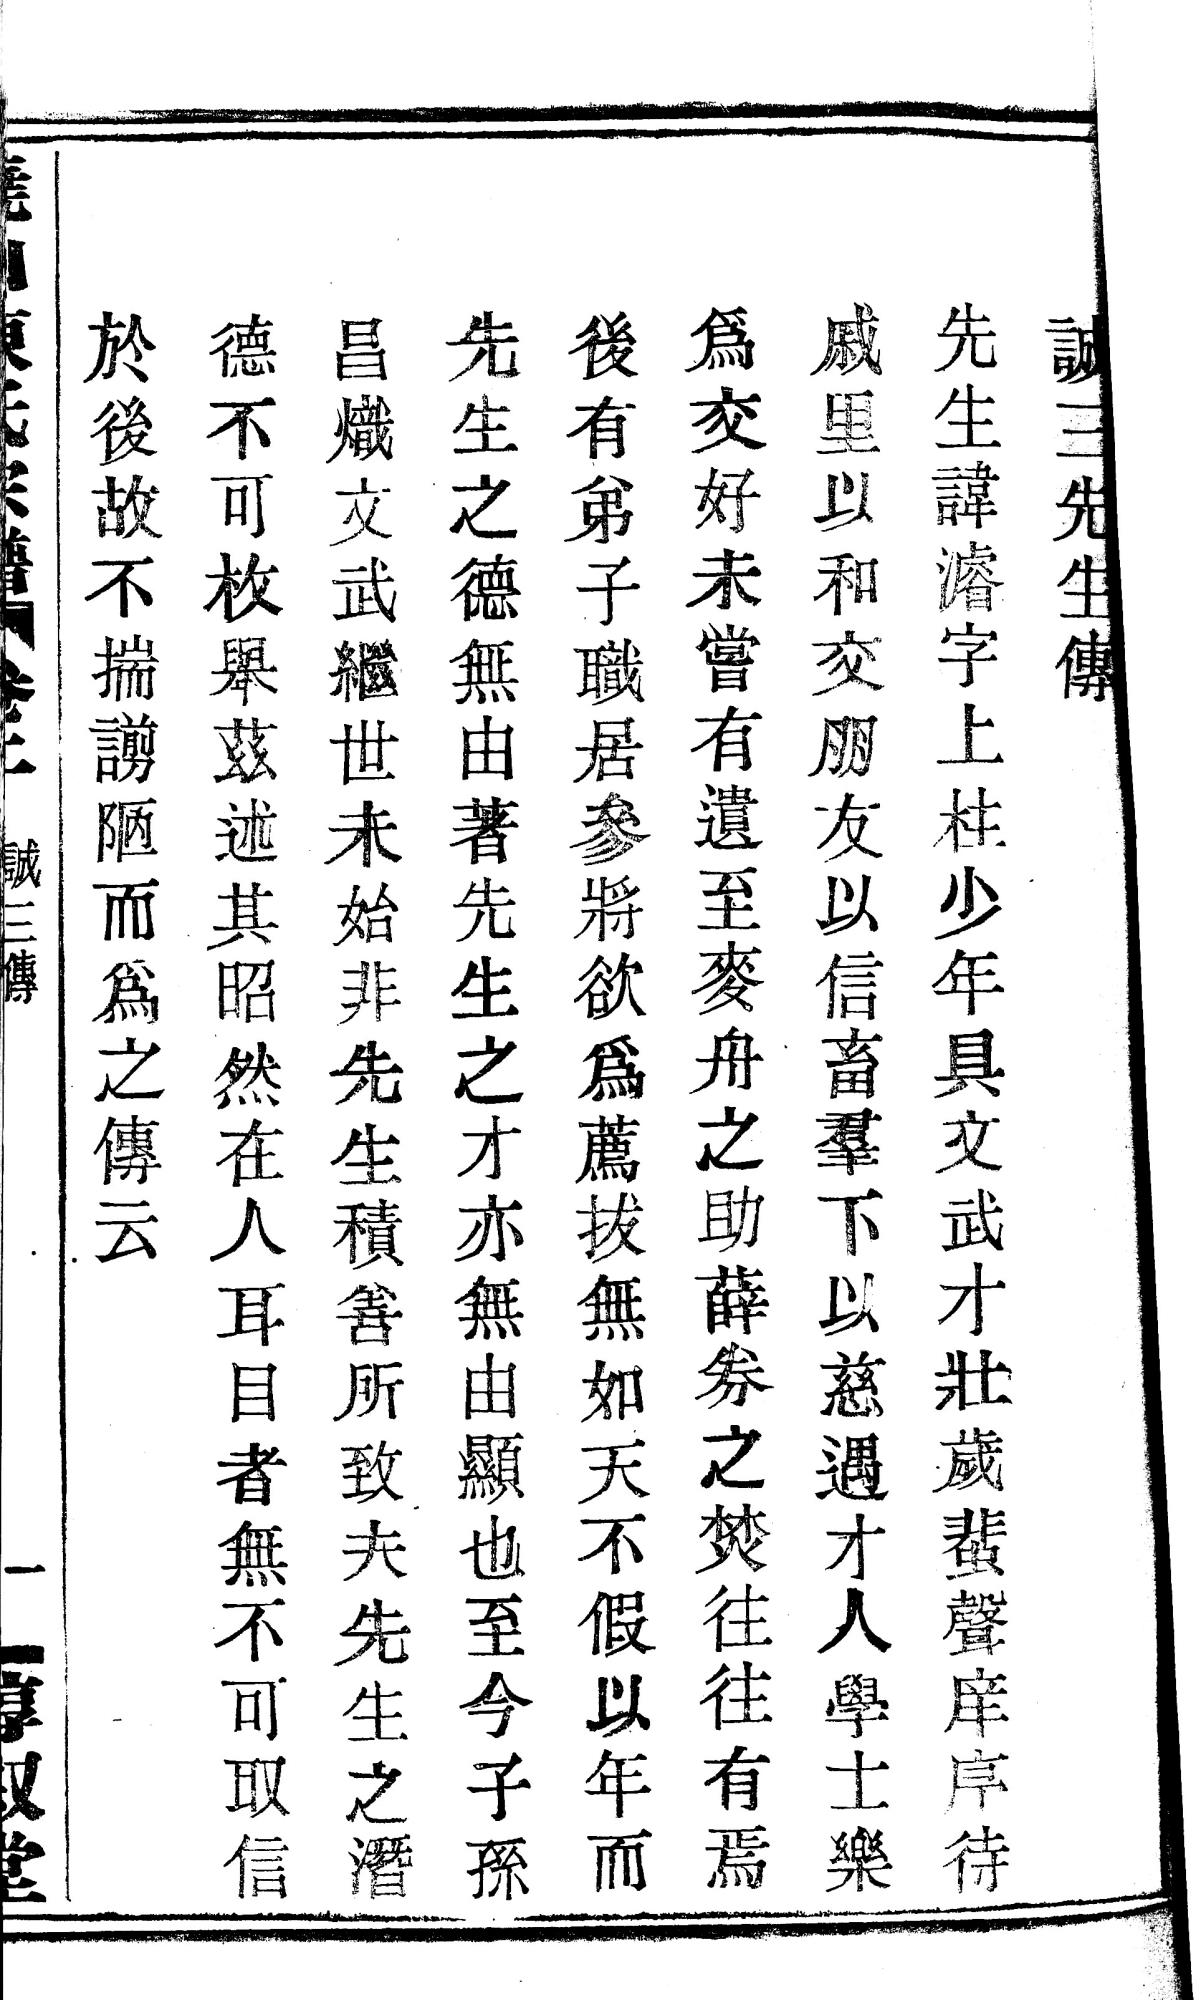 誠三先生傳
先生諱濬字上桂少年具文武才壯歲蜚聲庠序待
戚里以和交朋友以信畜羣下以慈遇才人學士樂
為交好未嘗有遺至麥舟之助薛券之焚往往有焉
後有弟子職居參將欲為薦拔無如天不假以年而
先生之德無由著先生之才亦無由顯也至今子孫
昌熾文武繼世未始非先生積善所致夫先生之潛
德不可枚舉茲述其昭然在人耳目者無不可取信
於後故不揣謭陋而為之傳云
氏宗譜 卷二 誠三傳 一 敘堂